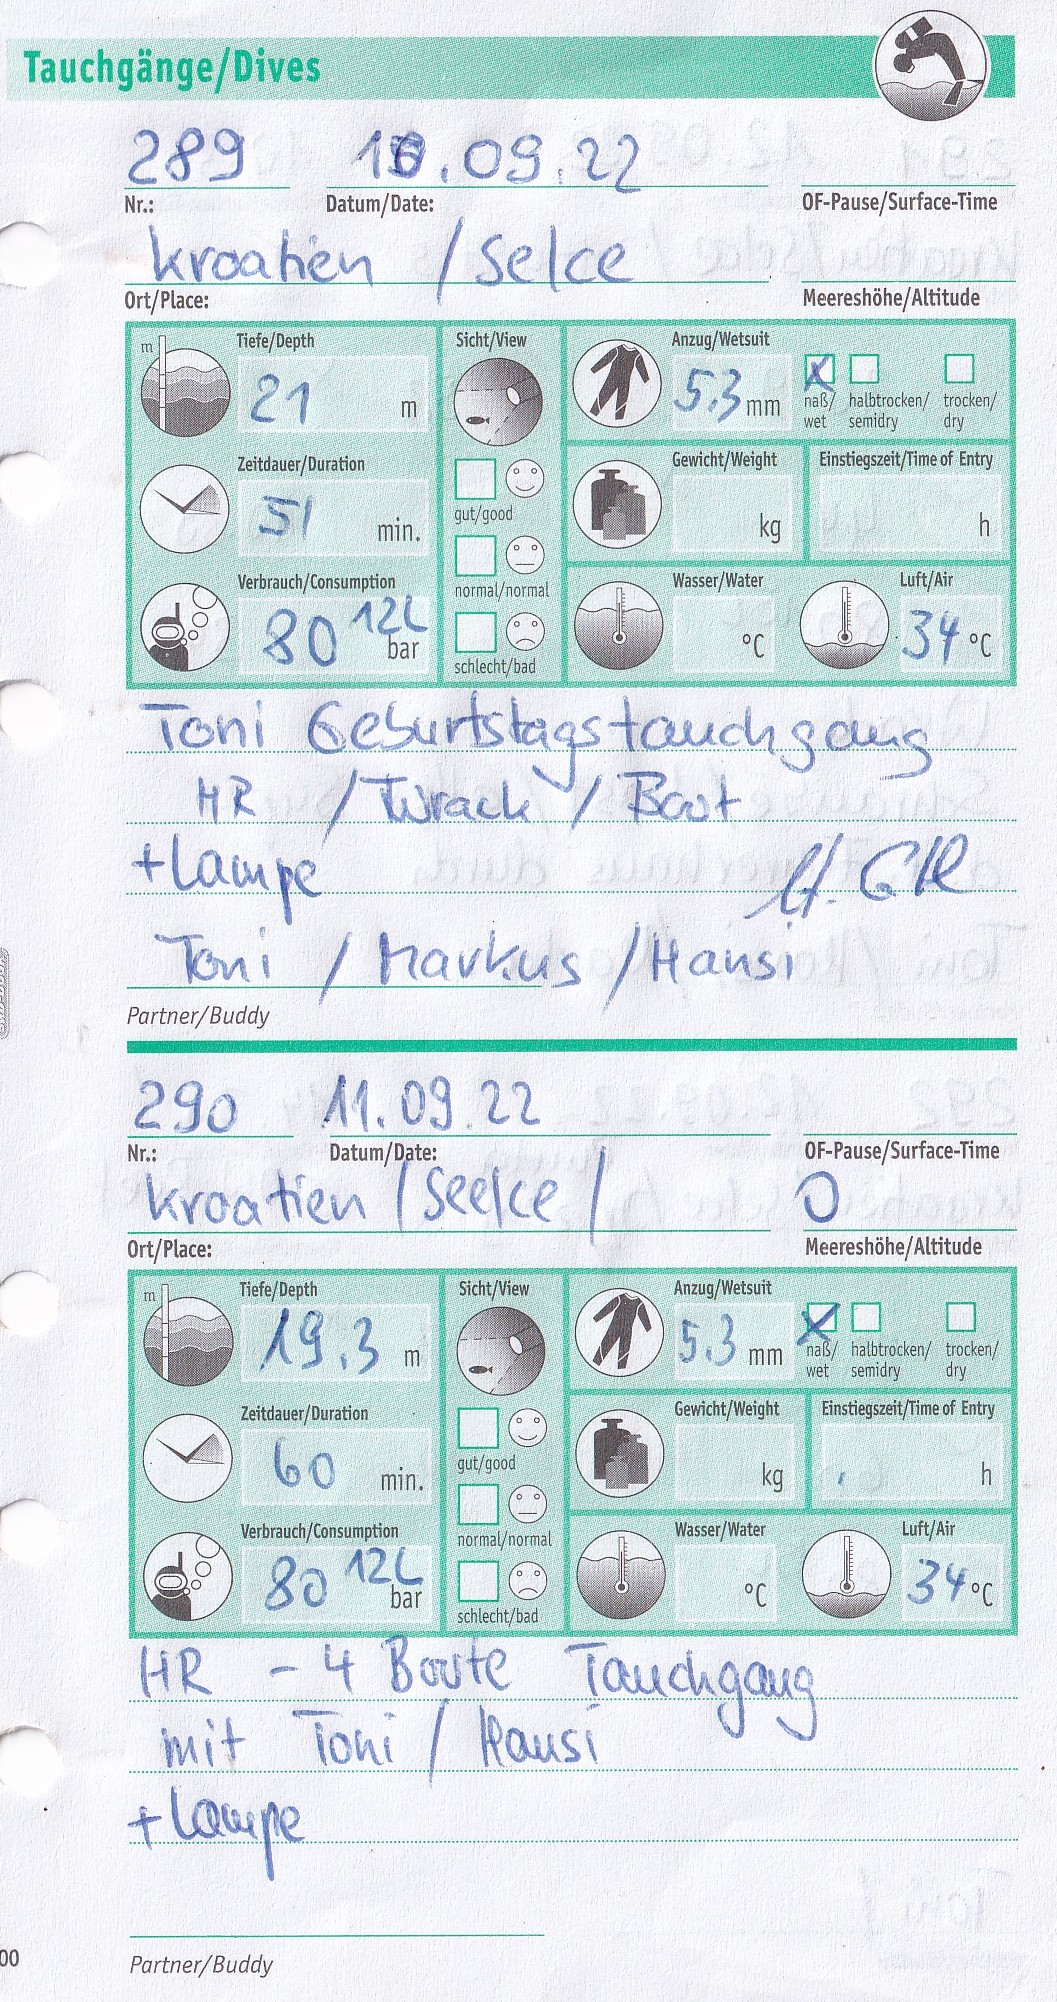 Tauchgänge/Dives
289 10.09.22
Nr.: Datum/Date: OF-Pause/Surface-Time
Kroatien / Selce
Ort/Place: Meereshöhe/Altitude
m Tiefe/Depth 21 m
Zeitdauer/Duration 51 min.
Verbrauch/Consumption 80 12L bar
Sicht/View
gut/good
normal/normal
schlecht/bad
Anzug/Wetsuit 5.3 mm X naß/wet halbtrocken/semidry trocken/dry
Gewicht/Weight kg Einstiegszeit/Time of Entry h
Wasser/Water °C Luft/Air 34 °C
Toni Geburtstagstauchgang
HR / Wrack / Boot
+ Lampe
Toni / Markus / Hansi
Partner/Buddy
290 11.09.22
Nr.: Datum/Date: OF-Pause/Surface-Time
Kroatien / Seelce / 0
Ort/Place: Meereshöhe/Altitude
m Tiefe/Depth 19.3 m
Zeitdauer/Duration 60 min.
Verbrauch/Consumption 80 12L bar
Sicht/View
gut/good
normal/normal
schlecht/bad
Anzug/Wetsuit 5.3 mm X naß/wet halbtrocken/semidry trocken/dry
Gewicht/Weight kg Einstiegszeit/Time of Entry h
Wasser/Water °C Luft/Air 34 °C
HR - 4 Boote Tauchgang
mit Toni / Hansi
+ Lampe
00
Partner/Buddy